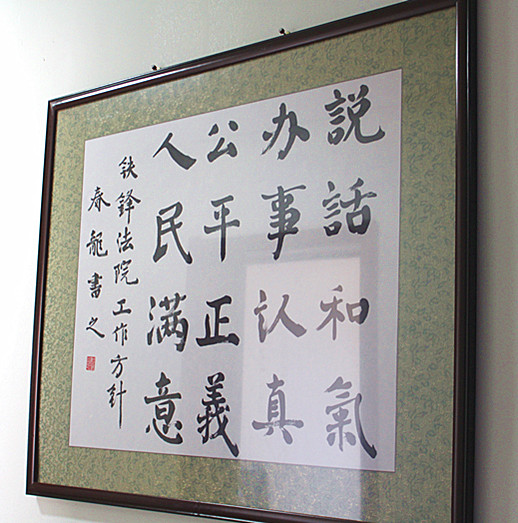 說話和氣
办事认真
公平正義
人民满意
铁鋒法院工作方針
春龍書之